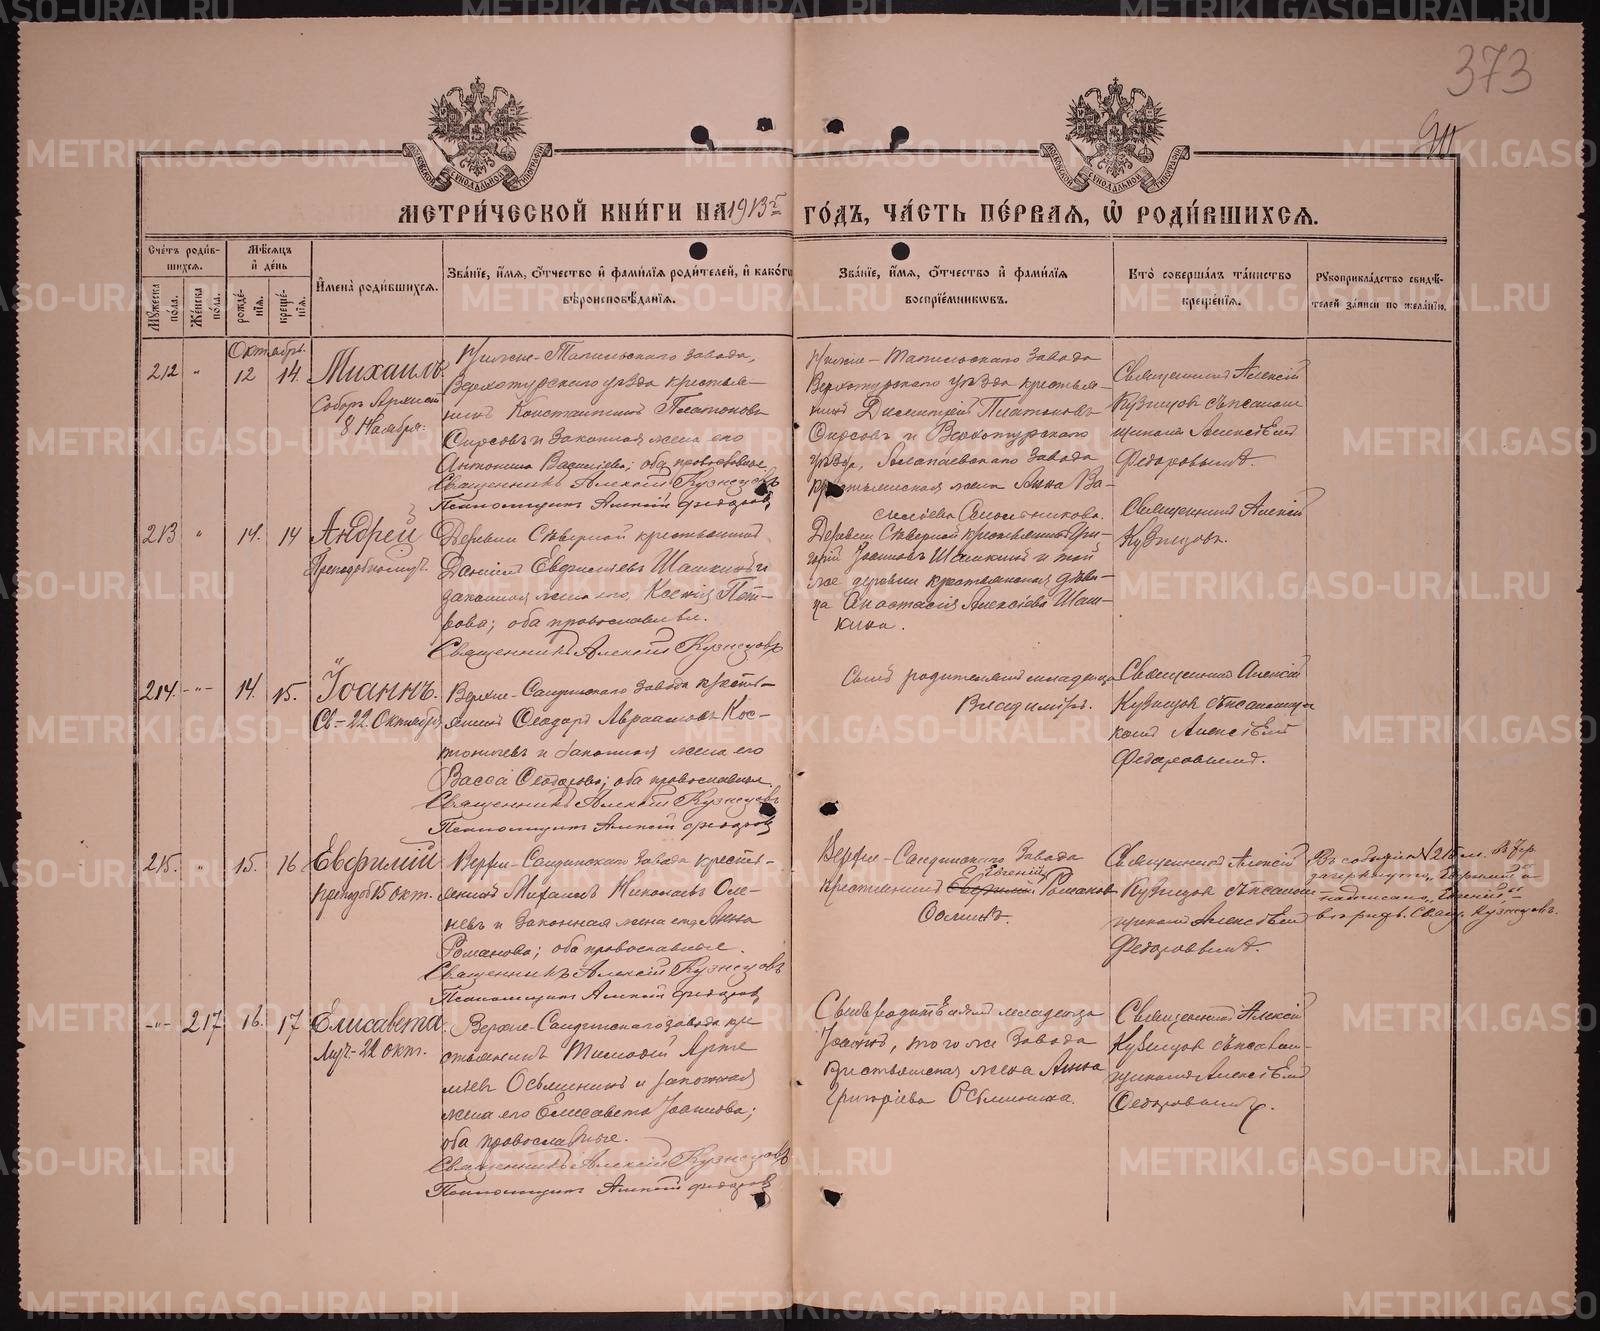 373
МЕТРИ́ЧЕСКОЙ КНИ́ГИ НА 1913 г. ГО́ДЪ, ЧА́СТЬ ПЕ́РВАЯ, Ѡ҆ РОДИ́ВШИХСѦ.
Сче́тъ роди́вшихсѧ.
Мꙋ́жеска по́ла.
Же́нска по́ла.
Мѣ́сѧцъ и҆ де́нь
рожде́нїѧ.
креще́нїѧ.
И҆мена̀ роди́вшихсѧ.
Зва́нїе, и҆́мѧ, ѻ҆́тчество и҆ фами́лїѧ роди́телей, и҆ како́гѡ
вѣроисповѣ́данїѧ.
Зва́нїе, и҆́мѧ, ѻ҆́тчество и҆ фами́лїѧ
воспрїе́мникѡвъ.
Кто̀ соверша́лъ та́инство
креще́нїѧ.
Рꙋкоприкла́дство свидѣ́-
телей за́писи по жела́нїю.
Октябрь.
212 " 12 14. Михаилъ
Соборъ Архист.
8 Ноября.
Нижне-Тагильскаго завода,
Верхотурскаго уѣзда крестья-
нинъ Константинъ Платоновъ
и законная жена его
Антонина Васильева; оба православные
Священникъ Алексѣй Кузнецовъ
Псаломщикъ Алексѣй Федоровъ
Нижне-Тагильскаго завода
Верхотурскаго уѣзда крестья-
нинъ Димитрій Платоновъ
и Верхотурскаго
уѣзда, Алапаевскаго завода
крестьянская жена Анна Ва-
сильева
Священникъ Алексѣй
Кузнецовъ съ псалом-
щикомъ Алексѣемъ
Федоровымъ.
213 " 14. 14 Андрей
Преподобномуч.
Деревни Сѣверной крестьянинъ
Даніилъ Шашкинъ и
законная жена его, Ксенія Пет-
рова; оба православные.
Священникъ Алексѣй Кузнецовъ
Деревни Сѣверной крестьянинъ Гри-
горій Іоанновъ Шашкинъ и той
же деревни крестьянская дѣви-
ца Анастасія Алексѣева Шаш-
кина.
Священникъ Алексѣй
Кузнецовъ.
214. -"- 14. 15. Іоаннъ.
Св-22 Октября
Верхне-Салдинскаго завода кресть-
янинъ Ѳеодоръ Авраамовъ Кос-
и законная жена его
Васса Ѳеодорова; оба православные
Священникъ Алексѣй Кузнецовъ
Псаломщикъ Алексѣй Федоровъ
Свящ. родителями младенца
Владиміръ.
Священникъ Алексѣй
Кузнецовъ съ псаломщи-
комъ Алексѣемъ
Федоровымъ.
215. " 15. 16 Евфимій
препод 15 окт.
Верхне-Салдинскаго завода кресть-
янинъ Михаилъ Николаевъ Оле-
невъ и законная жена его Анна
Романова; оба православные.
Священникъ Алексѣй Кузнецовъ
Псаломщикъ Алексѣй Федоровъ
Верхне-Салдинскаго завода
Евгеній
крестьянинъ Романовъ
Священникъ Алексѣй
Кузнецовъ съ псалом-
щикомъ Алексѣемъ
Федоровымъ.
Въ событіи № 215 м.
зачеркнуто, "Евфимій", а
надписано "Евгеній",
вѣрить. Свящ. Кузнецовъ.
-"- 217 16. 17 Елисавета
Муч-22 окт.
Верхне-Салдинскаго завода кре-
стьянинъ Тимоѳей Арте-
мьевъ Осьминиъ и законная
жена его Елисавета Іоаннова;
оба православные.
Священникъ Алексѣй Кузнецовъ
Псаломщикъ Алексѣй Федоровъ
младенца
Іоаннъ, того же завода
крестьянская жена Анна
Григорьева Осьминина.
Священникъ Алексѣй
Кузнецовъ съ псалом-
щикомъ Алексѣемъ
Федоровымъ.
METRIKI.GASO-URAL.RU